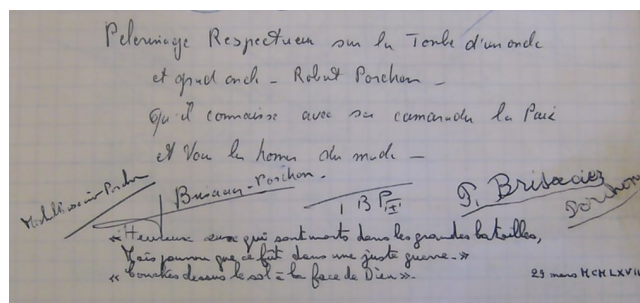 Pelerinage Respectueux sur la Tombe d'un oncle
et grand oncle - Robert Porchon -
Qu'il connaisse avec ses camarades la Paix
et Tous les hommes du monde -
Brisacier-Porchon.
P. Brisaciez
Porchon
« Heureux ceux qui sont morts dans les grandes batailles,
Mais pourvu que ce fût dans une juste guerre - »
« Couchés dessus le sol à la face de Dieu ».
29 mars MCMLXVII